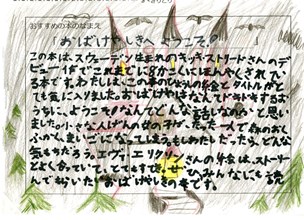 おすすめの本のなまえ
おばけやしきへようこそ!
この本は、スウェーデン生まれのキッキ・ストリードさんのデ
ビュー作でこれまでに
本です。わたしは、この本のひょうしの絵とタイトルがと
ても気に入りました。おばけやしきなんてドキドキするお
うちに、ようこそ!なんてどんな話なのかと思い
ました。小さな人げんの女の子が、たった一人で森のおく
気もちだろう。エヴァ・エリクソンさんの絵は、ストーリー
とよく合っていてとてもすてき。ぜひみんなにも読
んでもらいたいおばけやしきの本です。